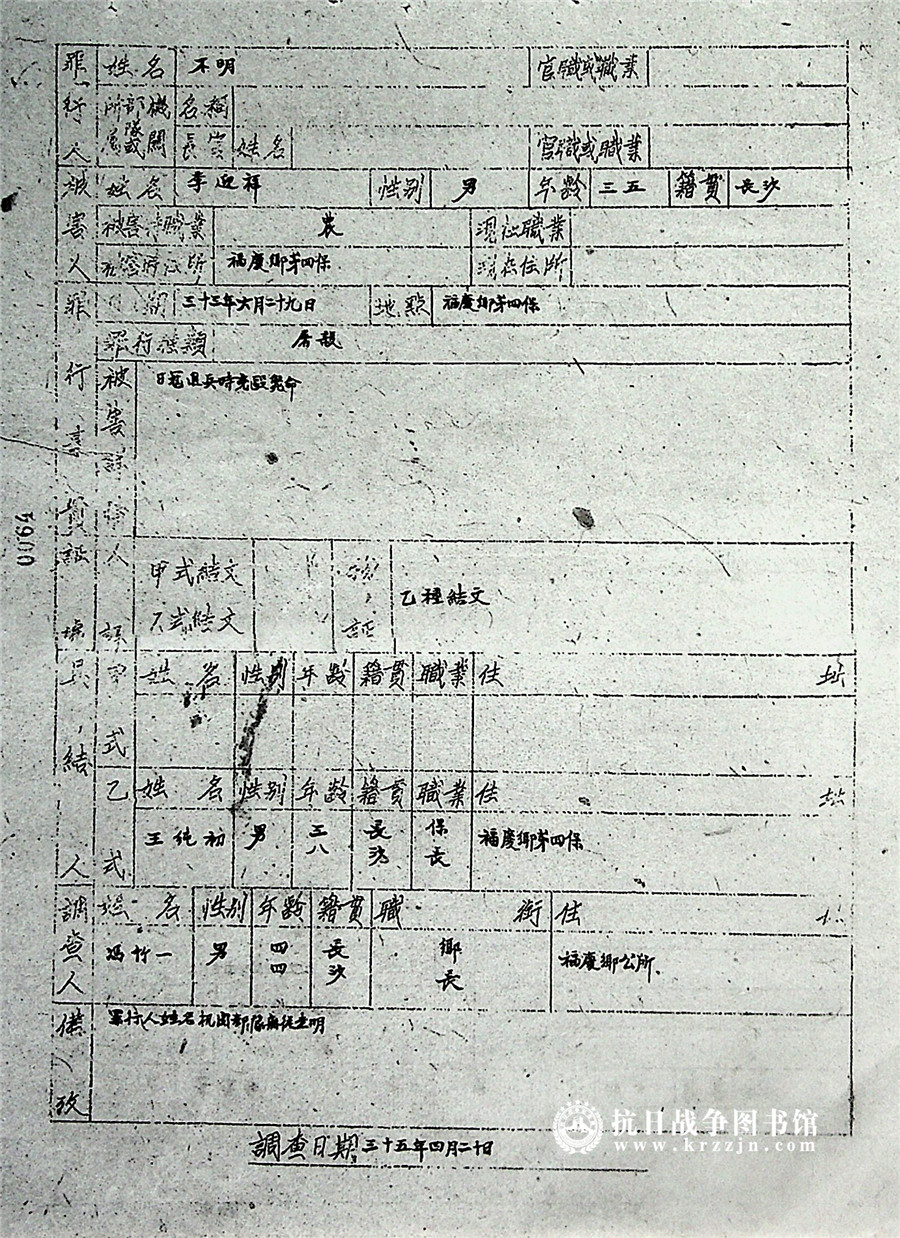 罪行人 姓名 不明 官職或職業
所部機
屬隊關 名稱
或 長官 姓名 官職或職業
被害人 姓名 李迎祥 性別 男 年齡 三五 籍貫 長沙
被害時職業 農 現在職業
被害時住所 福慶鄉第四保 現在住所
罪行事實 日期 三十三年六月二十九日 地點 福慶鄉第四保
罪行種類 屠殺
被害詳情 日寇退兵時
證據 人證 甲式結文
乙式結文 證 乙種結文
具結人 甲式 姓名 性別 年齡 籍貫 職業 住址
乙式 姓名 性別 年齡 籍貫 職業 住址
王純初 男 三八 長沙 保長 福慶鄉第四保
調查人 姓名 性別 年齡 籍貫 職銜 住
馮竹一 男 四四 長沙 鄉長 福慶鄉公所
備攷 罪行人姓名機關部隊無從查明
調查日期 三十五年四月二十日
0064
抗日战争图书馆
www.krzzjn.com